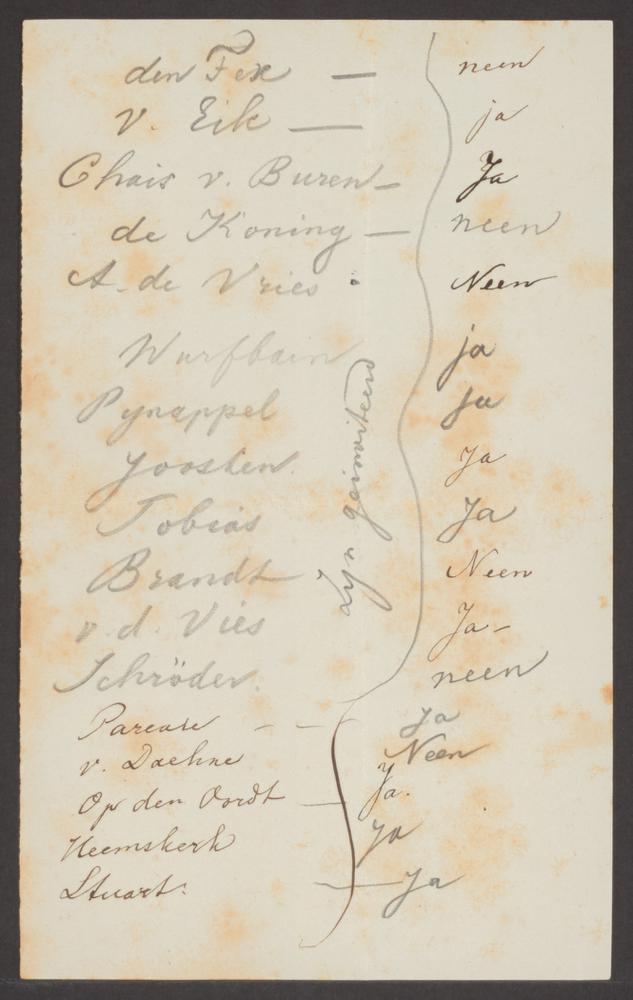 den Tex — neen
v. Eik — ja
Chais v. Buren — Ja
de Koning — neen
A. de Vries : Neen
Wurfbain ja
Pynappel ja
Joosten. Ja
Tobias Ja
Brandt Neen
v. d. Vies Ja -
Schröder. neen
zyn geinviteerd
Parcare - - ja
v. Daehne Neen
Op den Oordt — Ja.
Heemskerk ja
Stuart. — Ja